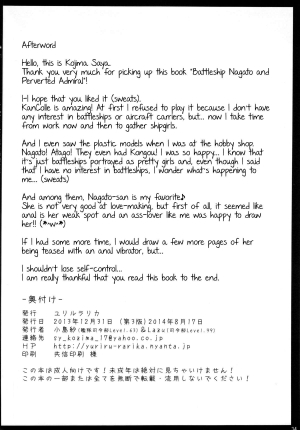 Afterword
Hello, this is Kojima Saya.
Thank you very much for picking up this book "Battleship Nagato and
Perverted Admiral"!
I-I hope that you liked it (sweats).
KanColle is amazing! At first I refused to play it because I don't have
any interest in battleships or aircraft carriers, but... now I take time
from work now and then to gather shipgirls.
And I even saw the plastic models when I was at the hobby shop.
Nagato! Atago! They even had Kongou! I was so happy... I know that
it's just battleships portrayed as pretty girls and, even though I said
that I have no interest in battleships, I wonder what's happening to
me... (sweats)
And among them, Nagato-san is my favorite♪
She is not very good at love-making, but first of all, it seemed like
anal is her weak spot and an ass-lover like me was happy to draw
her!! (*•w•*)
If I had some more time, I would draw a few more pages of her
being teased with an anal vibrator, but...
I shouldn't lose self-control...
I am really thankful that you read this book to the end.
-奥付け-
発行 ユリルラリカ
発行日 2013年12月31日 (第3版)2014年8月17日
発行者 小島紗(艦隊司令部Level.63)&Lazu(司令部Level.99)
連絡先 sy_kozima_17@yahoo.co.jp
HP http://yuriru-rarika.nyanta.jp
印刷 共信印刷 様
この本は成人向けです！未成年は絶対に見ちゃいけません！
この本の一部または全てを無断で転載・流用しないでください！